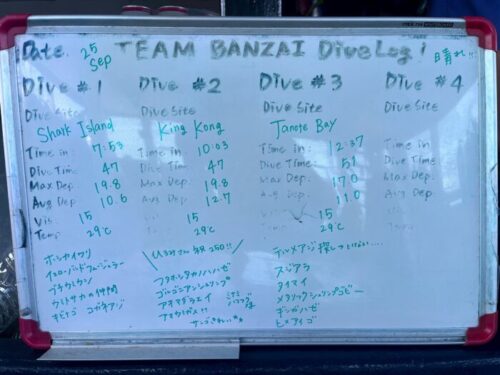 Date. 25 Sep TEAM BANZAI Dive Log! 晴れ!!
Dive #1
Dive Site
Shark Island
Time in: 7:53
Dive Time: 47
Max Dep: 19.8
Avg Dep: 10.6
Vis: 15
Temp: 29℃
イエローバンドフュージラー
ウミウサギの仲間
Dive #2
Dive Site
King Kong
Time in: 10:03
Dive Time: 47
Max Dep: 19.8
Avg Dep: 12.7
Vis: 15
Temp: 29℃
祝 250!!
アオマダラエイ
サンゴきれい
Dive #3
Dive Site
Tanote Bay
Time in: 12:37
Dive Time: 51
Max Dep: 17.0
Avg Dep: 11.0
Vis: 15
Temp: 29℃
スジアラ
タイマイ
メタリックシュリンプゴビー
ギンガハゼ
ヒメアイゴ
Dive #4
Dive Site
Time in:
Dive Time:
Max Dep:
Avg Dep: